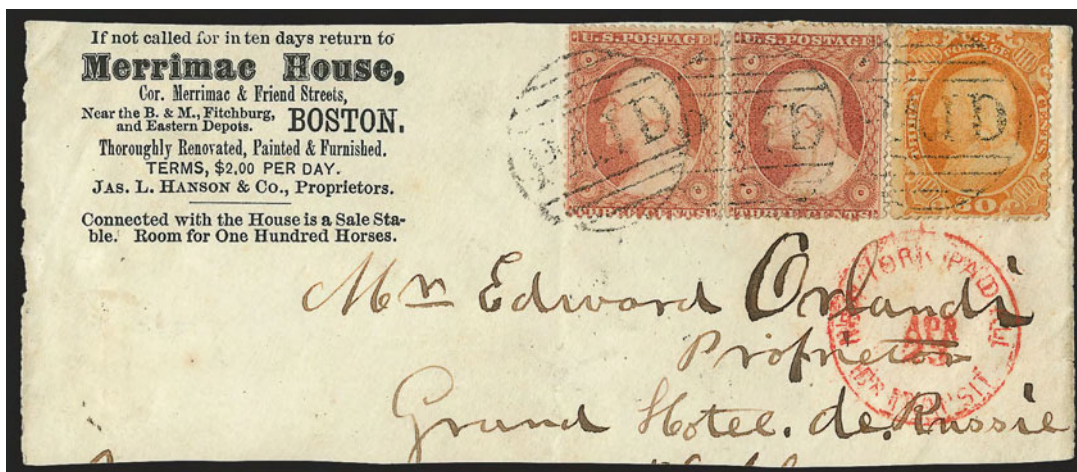 If not called for in ten days return to
Merrimac House,
Cor. Merrimac & Friend Streets,
Near the B. & M., Fitchburg,
and Eastern Depots. BOSTON.
Thoroughly Renovated, Painted & Furnished.
TERMS, $2.00 PER DAY.
JAS. L. HANSON & CO., Proprietors.
Connected with the House is a Sale Sta-
ble. Room for One Hundred Horses.
U.S. POSTAGE
THREE CENTS
PAID
U.S. POSTAGE
THREE CENTS
PAID
U.S.
POSTAGE
CENTS
30
PAID
NEW YORK PAID
APR
TRANSIT
Mr Edward Orlandi
Proprietor
Grand Hotel. de. Russie